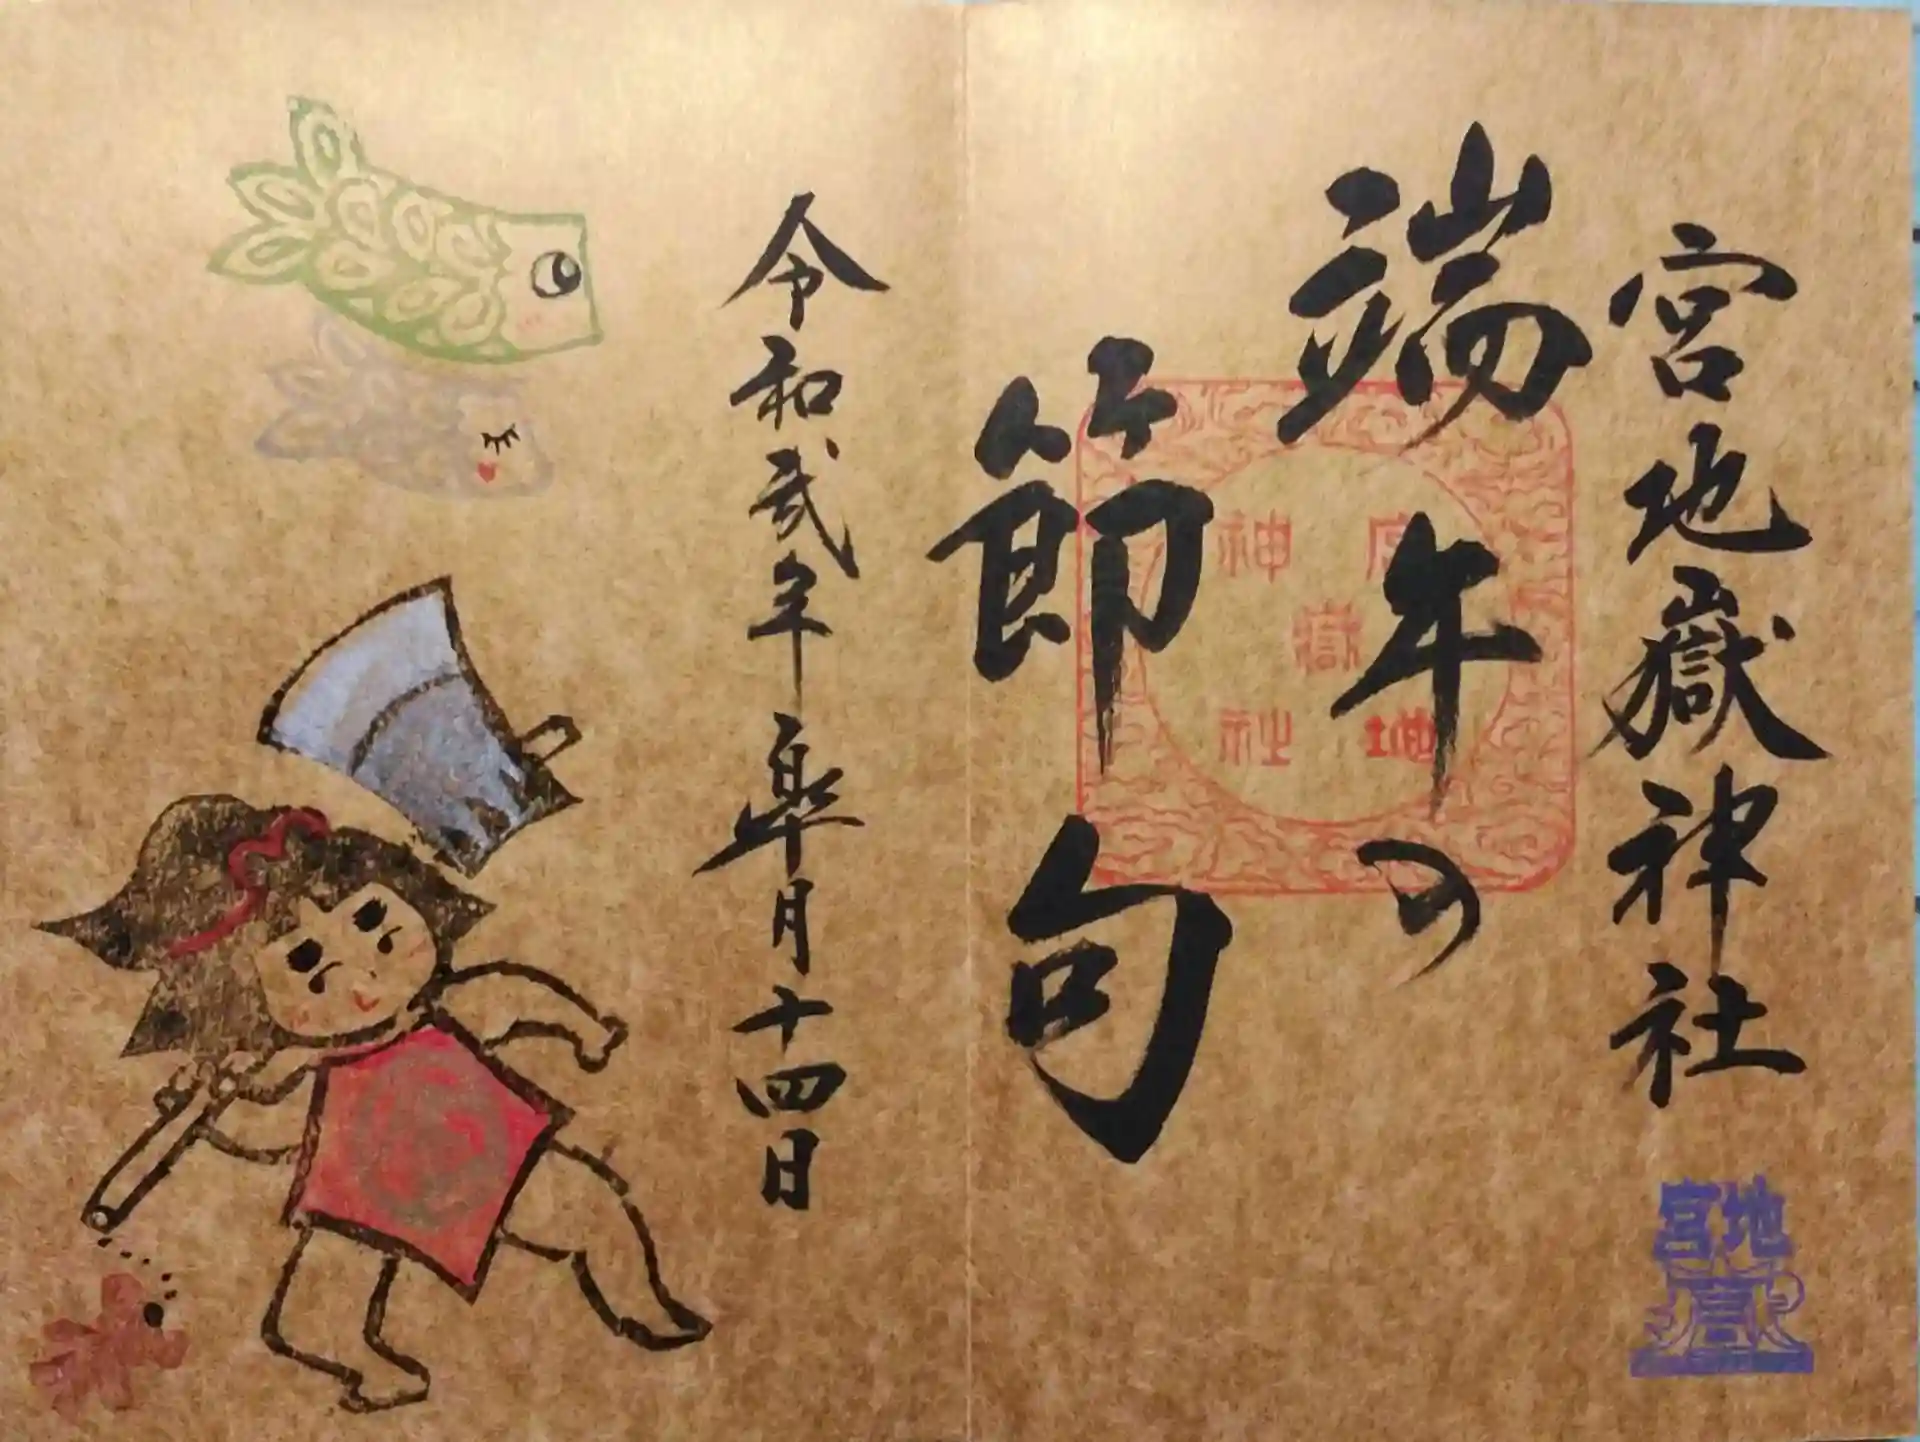 宮地嶽神社
端午の
節句
令和弐年皐月十四日
宮地
嶽
神社
宮地
嶽